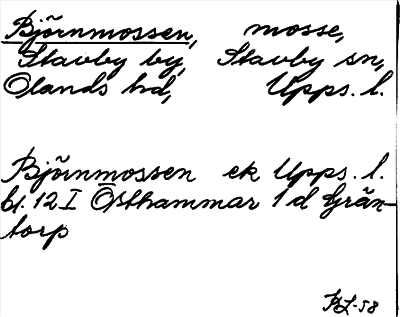 Björnmossen, mosse,
Stavby by, Stavby sn,
Olands hd, Upps. l.
Björnmossen ek Upps. l.
bl. 12 I Östhammar 1 d Grän-
torp
BL-58